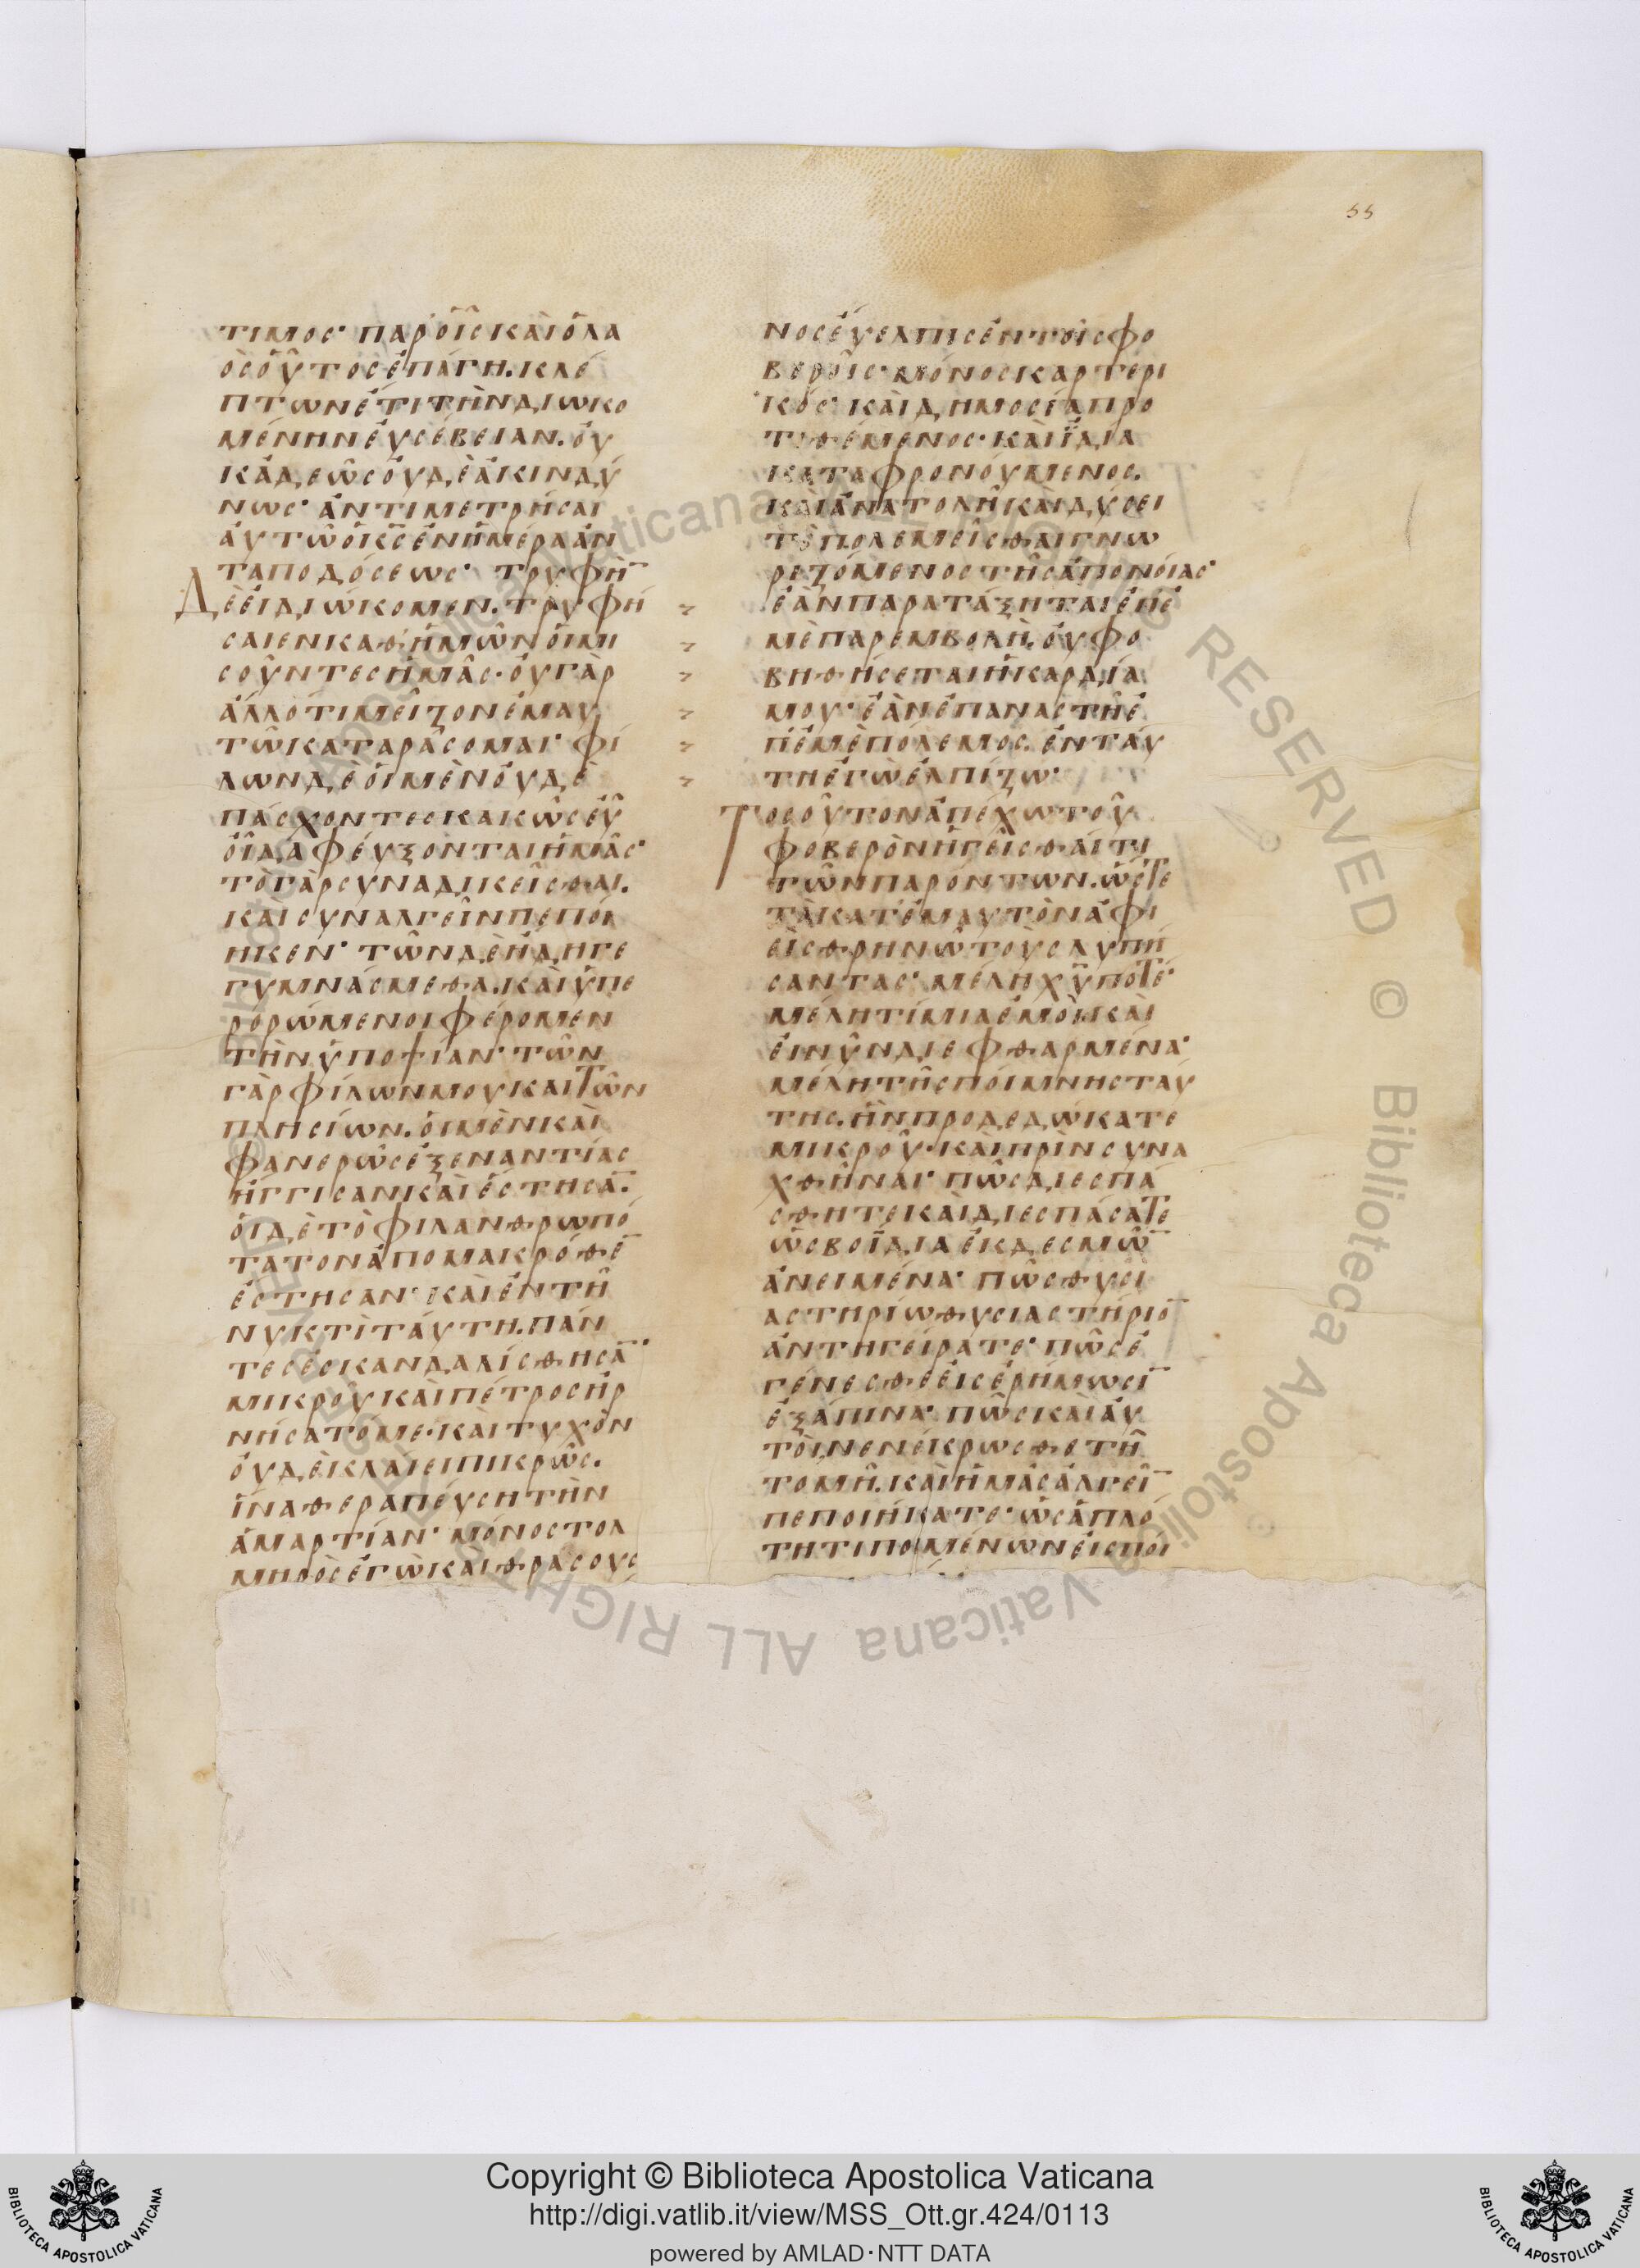 55
τιμος· παρ' οἷς καὶ ὁ λα
ὸς οὗτος ἐπάγη. κλέ
πτων ἔτι τὴν διωκο
μένην ἐυσέβειαν. ὀυ
κ ἀδεῶς ὀυδὲ ἀκινδύ
νως· ἀντιμετρήσαι
ἀυτῶ ὁ κ̅ς̅ ἐν ἡμέρα ἀν
ταποδόσεως· τρυφὴ̅
Δὲ ἐι διώκομεν. τρυφή
σαιεν καθ' ἡμῶν ὁι μι
σοῦντες ἡμᾶς· ὀυ γὰρ
ἄλλό τι μεῖζον ἐμαυ
τῶ καταράσομαι· φί
λων δὲ ὁι μὲν ὀυδὲ
πάσχοντες κακῶς ἐῦ
ὁῖδα φέυξονται ἡμᾶς·
τὸ γὰρ συναδικεῖσθαι.
καὶ συναλγεῖν πεποί
ηκεν· τῶν δὲ ἤδη γε
γυμνάσμεθα. καὶ ὑπε
ρορώμενοι φέρομεν
τὴν ὑποψίαν· τῶν
γὰρ φίλων μου καὶ τῶν
πλησίων. ὁι μὲν καὶ
φανερῶς ἐξ εναντίας
ἤγγισαν καὶ ἔστησα̅·
ὁι δὲ τὸ φιλανθρωπό
τατον ἀπο μακρόθε̅
ἔστησαν· καὶ ἐν τῆ
νυκτὶ τάυτη. πάν
τες ἐσκανδαλίσθησα̅·
μικρου καὶ πέτρος ἠρ
νήσατό με· καὶ τυχὸν
ὀυδὲ κλάιει πικρῶς.
ἵνα θεραπέυση τὴν
ἁμαρτίαν· μόνος τολ
μηρὸς ἐγὼ καὶ θρασυς
νος ἐύελπις ἐν τοῖς φο
βεροῖς· μόνος καρτερι
κός· καὶ δημοσία προ
τιθέμενος· καὶ ἰδία
καταφρονούμενος.
καὶ ἀνατολῆ καὶ δύσει
τῶ πολεμεῖσθαι γνω
ριζόμενος τῆς ἀπονοίας·
ἐὰν παρατάξηται ἐπ' ἐ
μὲ παρεμβολὴ. ὀυ φο
βηθήσεται ἡ καρδία
μου· ἐὰν ἐπαναστῆ ἐ
π' ἐμὲ πόλεμος. ἐν τάυ
τη ἐγὼ ἐλπίζω·
Τοσοῦτον ἀπέχω τοῦ
φοβερὸν ἡγεῖσθάι τι
τῶν παρόντων. ὥστε
τὰ κατ' ἐμαυτὸν ἀφι
εὶς θρηνῶ τοὺς λυπή
σαντας· μέλη χ̅υ̅ ποτέ·
μέλη τίμια ἐμὸι. καὶ
ἐι νῦν διεφθαρμένα·
μέλη τῆς πόιμνης τάυ
της. ἣν προδεδώκατε
μικροῦ· καὶ πρὶν συνα
χθῆναι· πῶς διεσπά
σθητε καὶ διεσπάσατε
ὡς βοΐδια ἐκ δεσμῶ̅
ἀνειμένα· πῶς θυσι
αστηρίω θυσιαστήριο̅
ἀντηγείρατε· πῶς ἐ
γένεσθε ἐις ἐρήμωσι̅
ἐξάπινα· πῶς καὶ ἀυ
τὸι νενέκρωσθε τῆ
τομῆ. καὶ ἡμᾶς ἀλγεῖ̅
πεποιήκατε· ὡς ἁπλό
τητι ποιμένων ἐις ποί
Copyright © Biblioteca Apostolica Vaticana
http://digi.vatlib.it/view/MSS_Ott.gr.424/0113
powered by AMLAD·NTT DATA
BIBLIOTECA APOSTOLICA VATICANA
BIBLIOTECA APOSTOLICA VATICANA